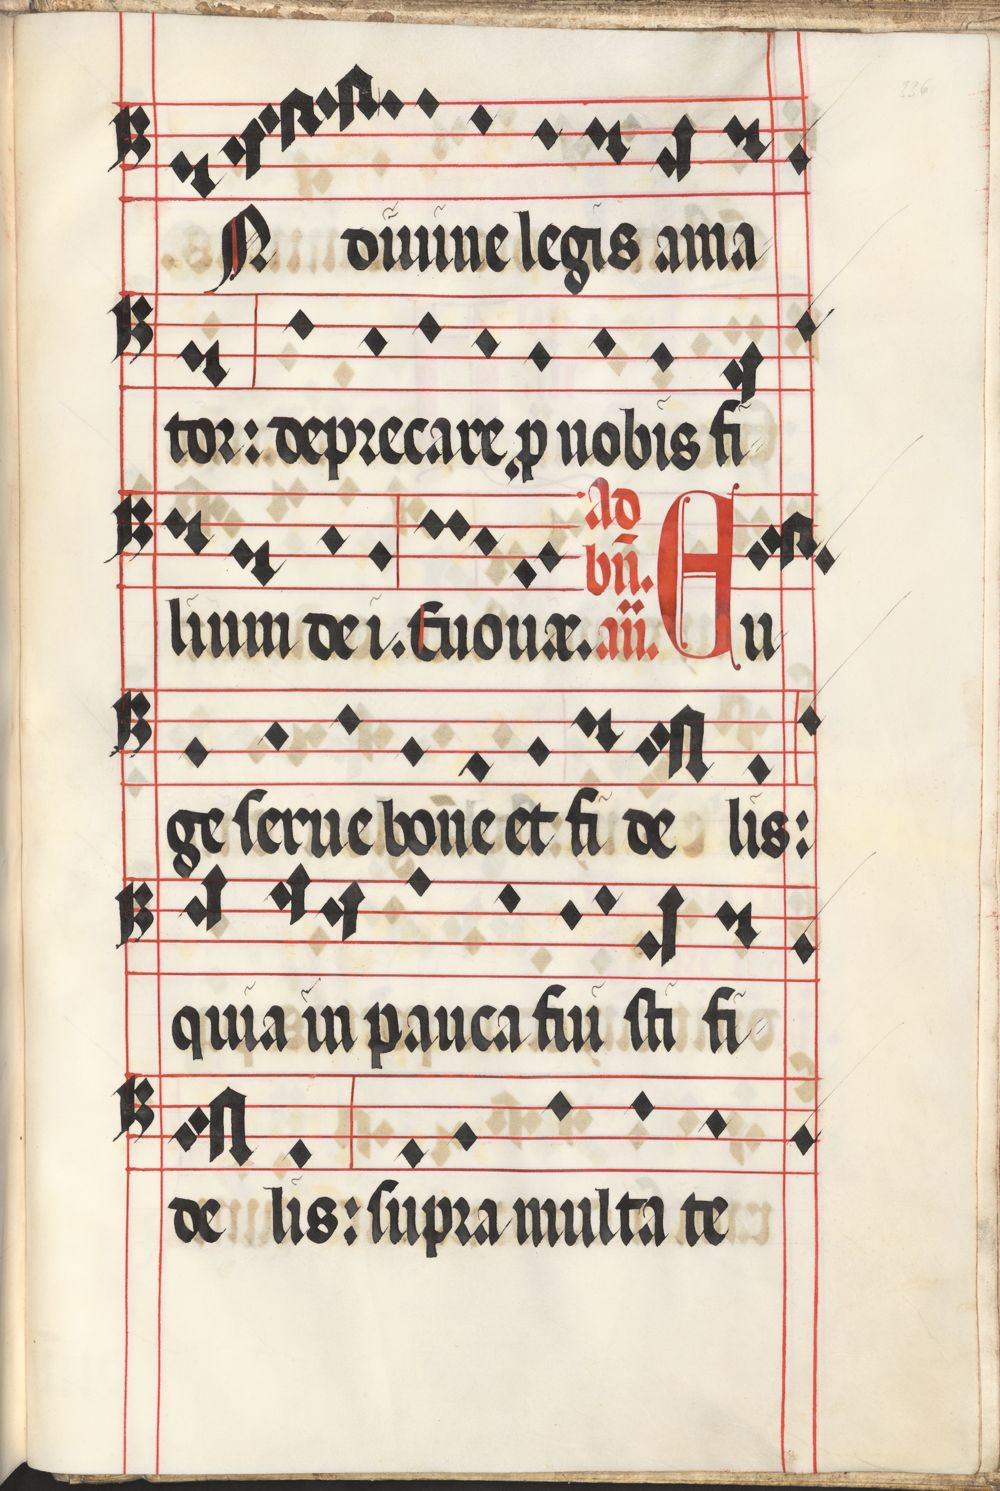 N diuine legis ama
tor: deprecare ꝓ nobis fi
lium dei. Euouæ. Ad bn̄. an̄. Eu
ge serue bone et fi de lis:
quia in pauca fui sti fi
de lis: supra multa te